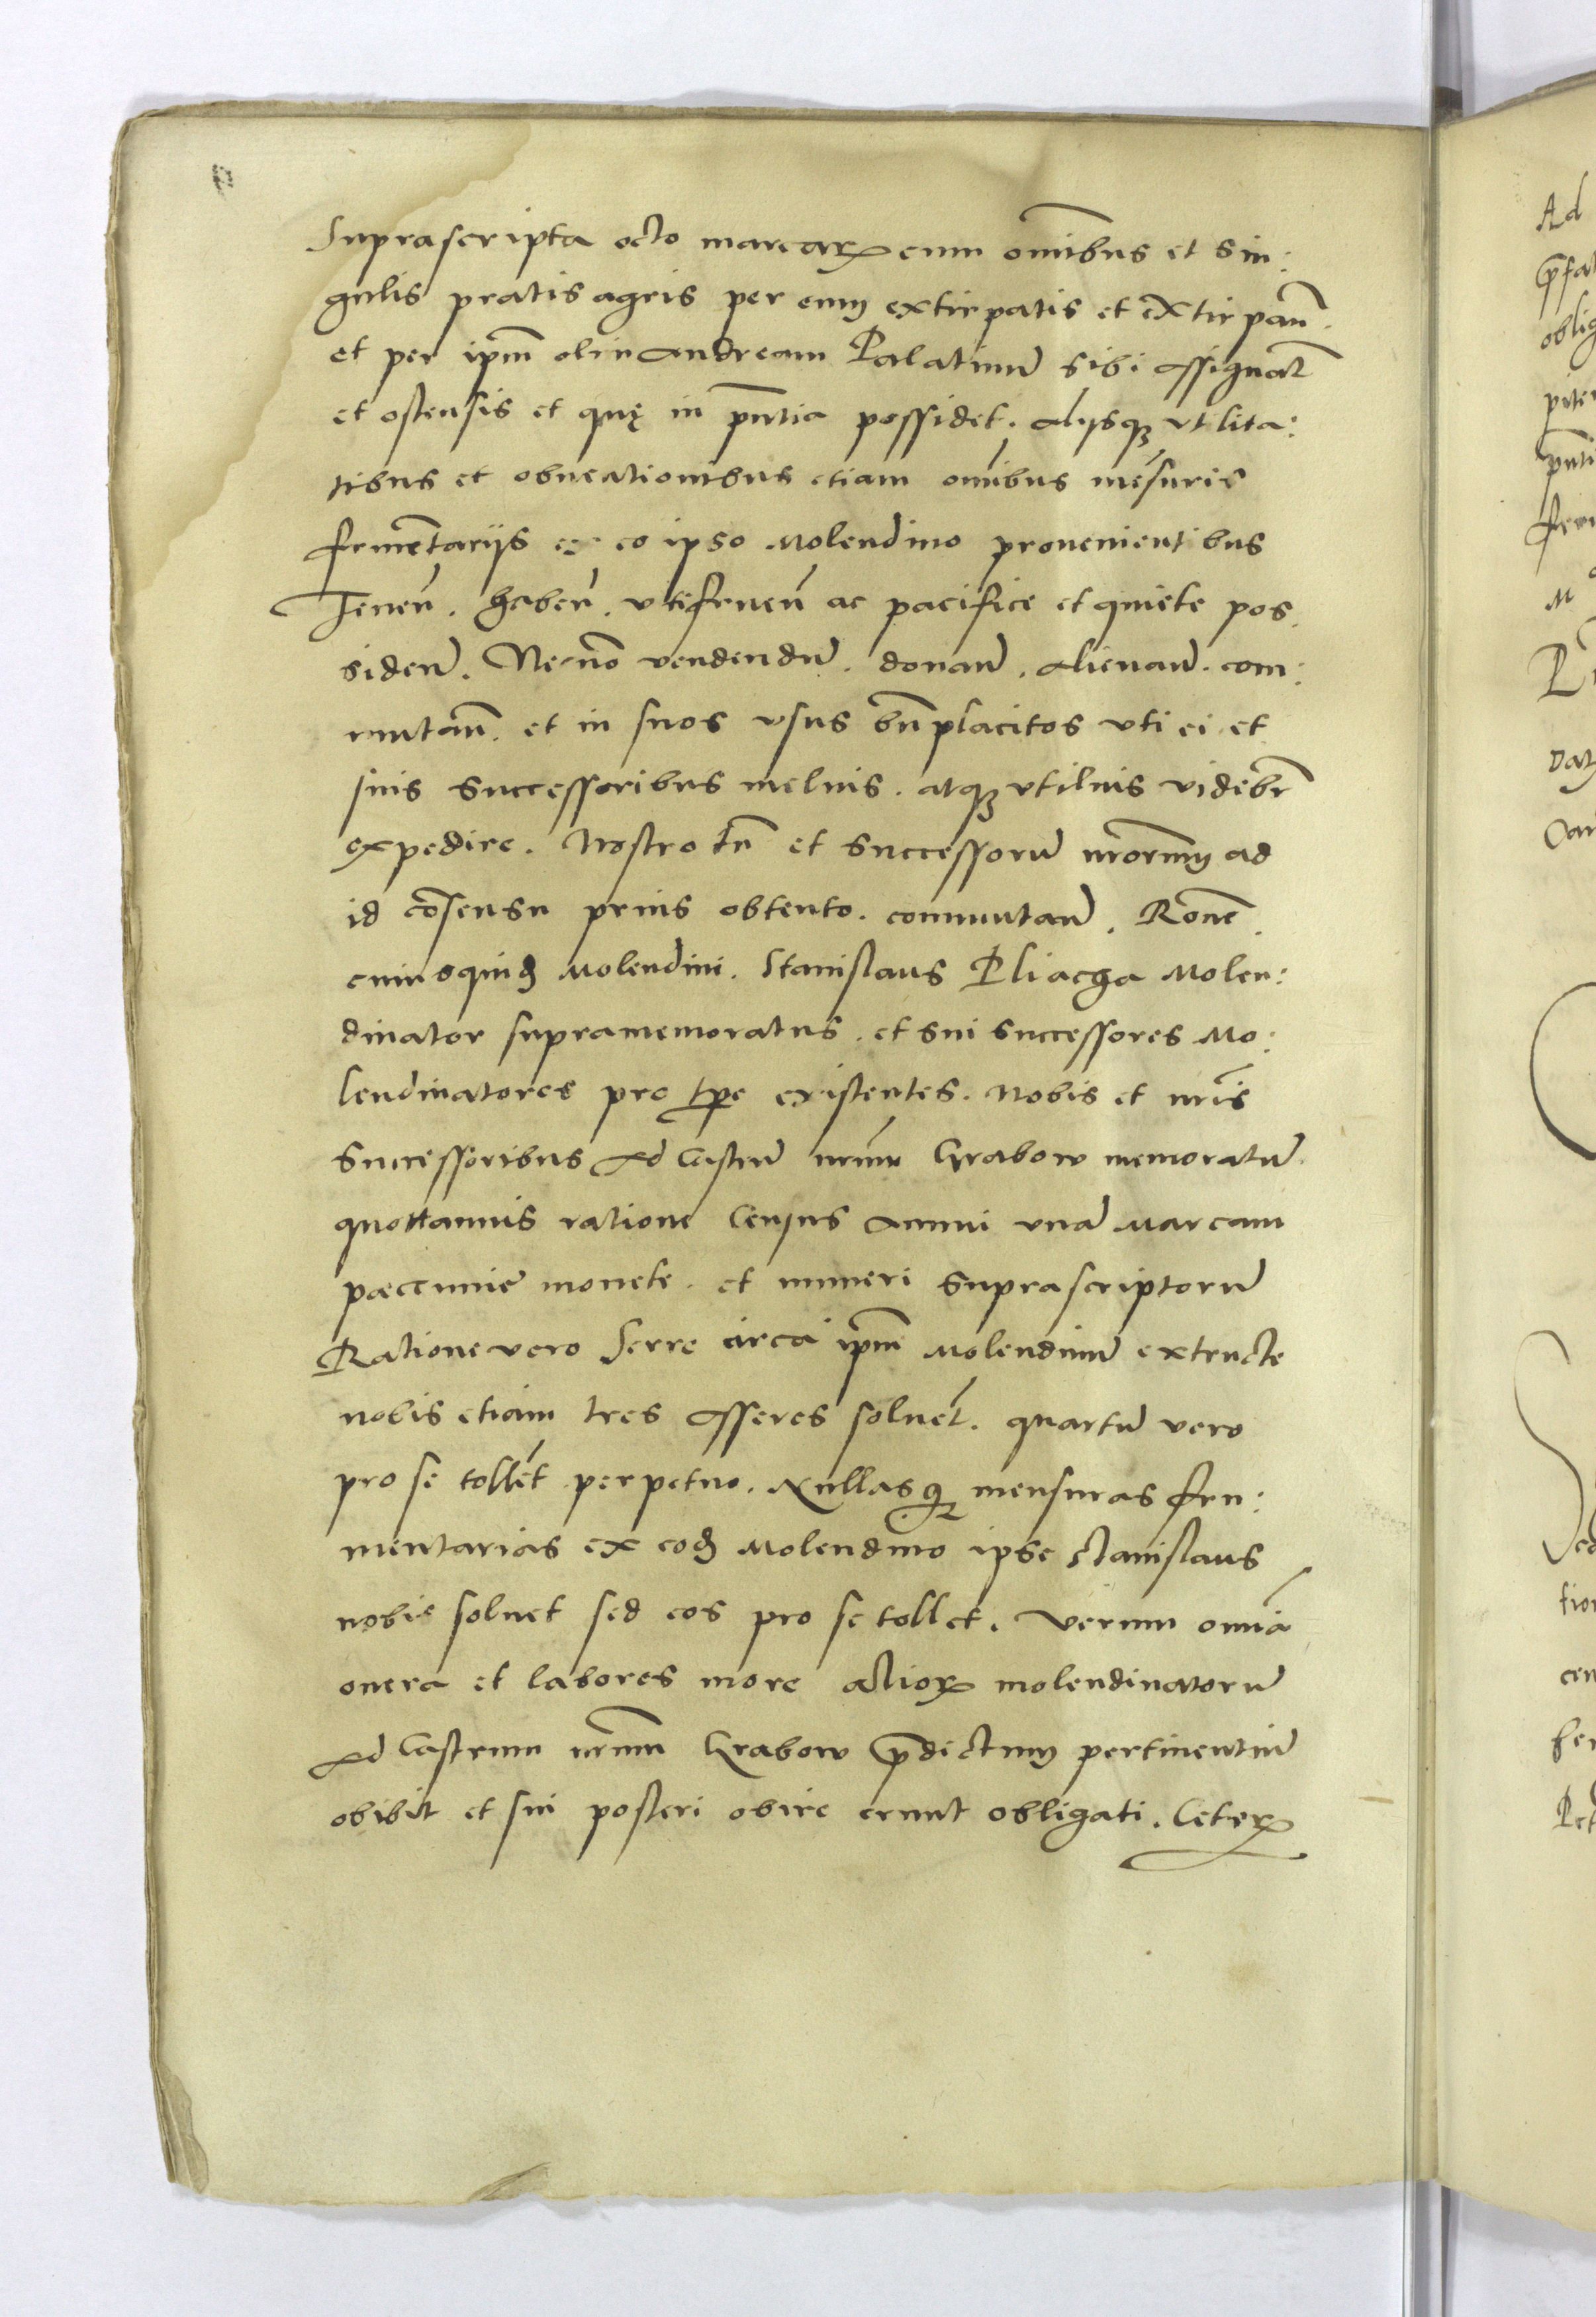 Suprascripta octo marcarꝝ cum om̄ibus et sin:
gulis pratis agris per eum extirpatis et extirpan̄.
et per ip̄m olim Andream Palatinū sibi assignat̄
et ostensis et quę in p̄ntia possidet. Alijsqꝫ utilita:
tibus et obuentionibus etiam om̄ibus mēsuris
frumētariis ex eo ipso Molendino prouenientibus
Tenen̄. haben̄. vtifruen̄ ac pacifice et quiete pos.
siden̄. Necnō vendendū. donan̄. Alienan̄. com:
mutan̄. et in suos vsus bn̄placitos vti ei et
suis Successoribus melius. atqꝫ vtilius videbr̄
expedire. Nostro tn̄ et Successorū nr̄orum ad
id cōsensu prius obtento. commutan̄. Rōne
cuiusquid Molendini. Stanislaus Pliacha Molen:
dinator supramemoratus. et sui Successores Mo:
lendinatores pro tp̄e existentes. Nobis et nr̄is
Successoribus Ad Castrū nr̄um Grabow memoratū
quottannis ratione Census Annui vnā Marcam
pæccunie monete. et numeri Suprascriptorū
Ratione vero Serre circa ip̄m Molendinū extructe
nobis etiam tres Asseres soluēt. quartū vero
pro se tollēt perpetuo. Nullasqꝫ mensuras fru:
mentarias ex eod Molendino ipse Stanislaus
nobis soluet sed eos pro se tollet. Verum omnia
onera et labores more Aliorꝝ molendinatorū
Ad Castrum nr̄um Grabow p̄dictum pertinentiū
obibit et sui posteri obire erunt obligati. Ceterꝝ